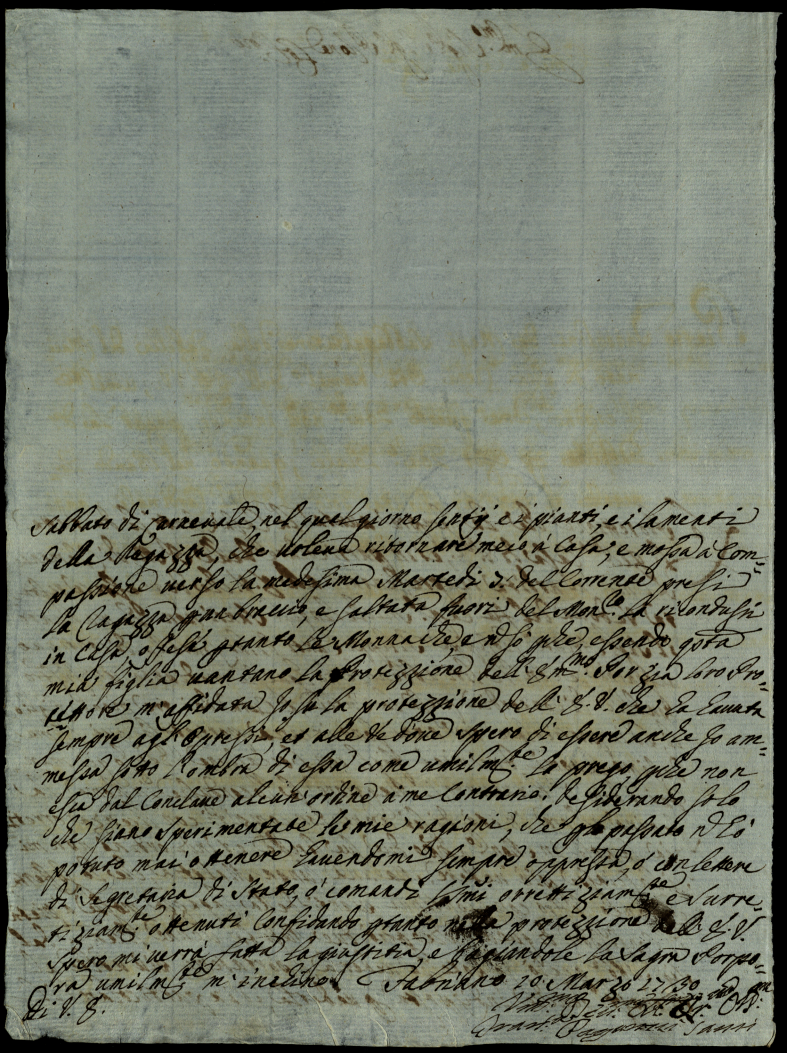 Sabbato di Carnevale, nel qual giorno sentij e i pianti, e i lamenti
della Ragazza, che voleva ritornare meco á Casa; e mossa á Com-
passione verso la medesima Martedi 7. del Corrente presi
la Ragazza p un braccio, e saltata fuori del Mon.ro la ricondussi
in Casa, offesa ptanto le Monnache, e nō só pche, essendo qsta
mia figlia vantano la Protezzione dell' Em.mo Porzia loro Pro-
tettore m'affidata Io su la protezzione dell' E. V. che hà havuta
sempre agl'Oppressi, et alle Vedove spero di essere anche Io am-
messa sotto l'ombra di essa come umilm.te La prego, pche non
esca dal Conclave alcun'ordine á me Contrario: desiderando solo
che siano sperimentate le mie ragioni, che p lo passato nō hò
potuto mai ottenere havendomi sempre oppressa, ó con lettere
di Segretaria di Stato, ó comandi orrettiziam.te e surre-
tiziam.te ottenuti Confidando ptanto nella protezzione dell' E. V.
Spero mi verrá fatta la giustitia, e baciandole la Sagra Porpo-
ra umilm.te m'inchino. Fabriano 10 Marzo 1730
Di V. E.